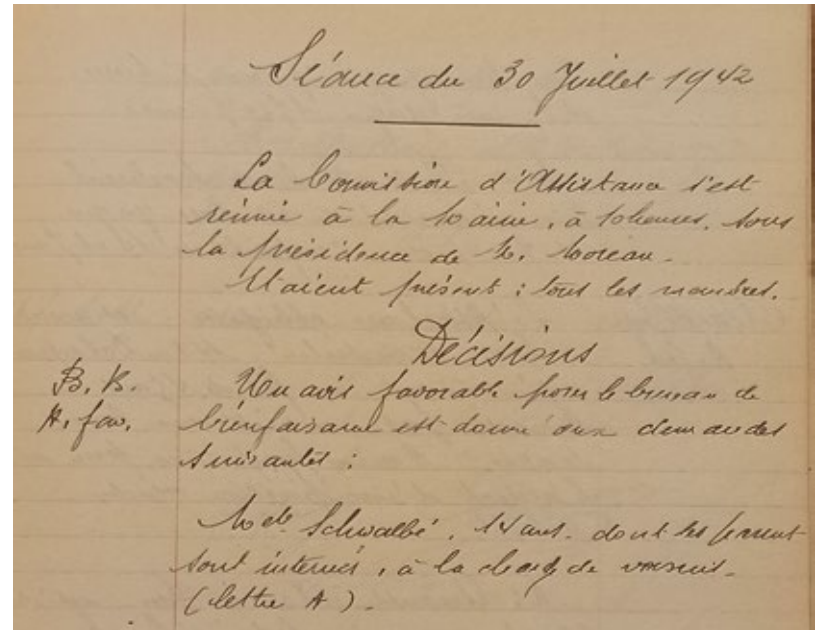 Séance du 30 Juillet 1942
La Commission d'Assistance s'est
réunie à la Mairie, à 10 heures, sous
la présidence de M. Moreau.
Etaient présent : tous les membres.
Décisions
B. B. Un avis favorable pour le bureau de
A. fav. bienfaisance est donné aux demandes
suivantes :
Melle Schwalbé, 14 ans. dont les parents
sont internés, à la charge de voisins.
(lettre A).